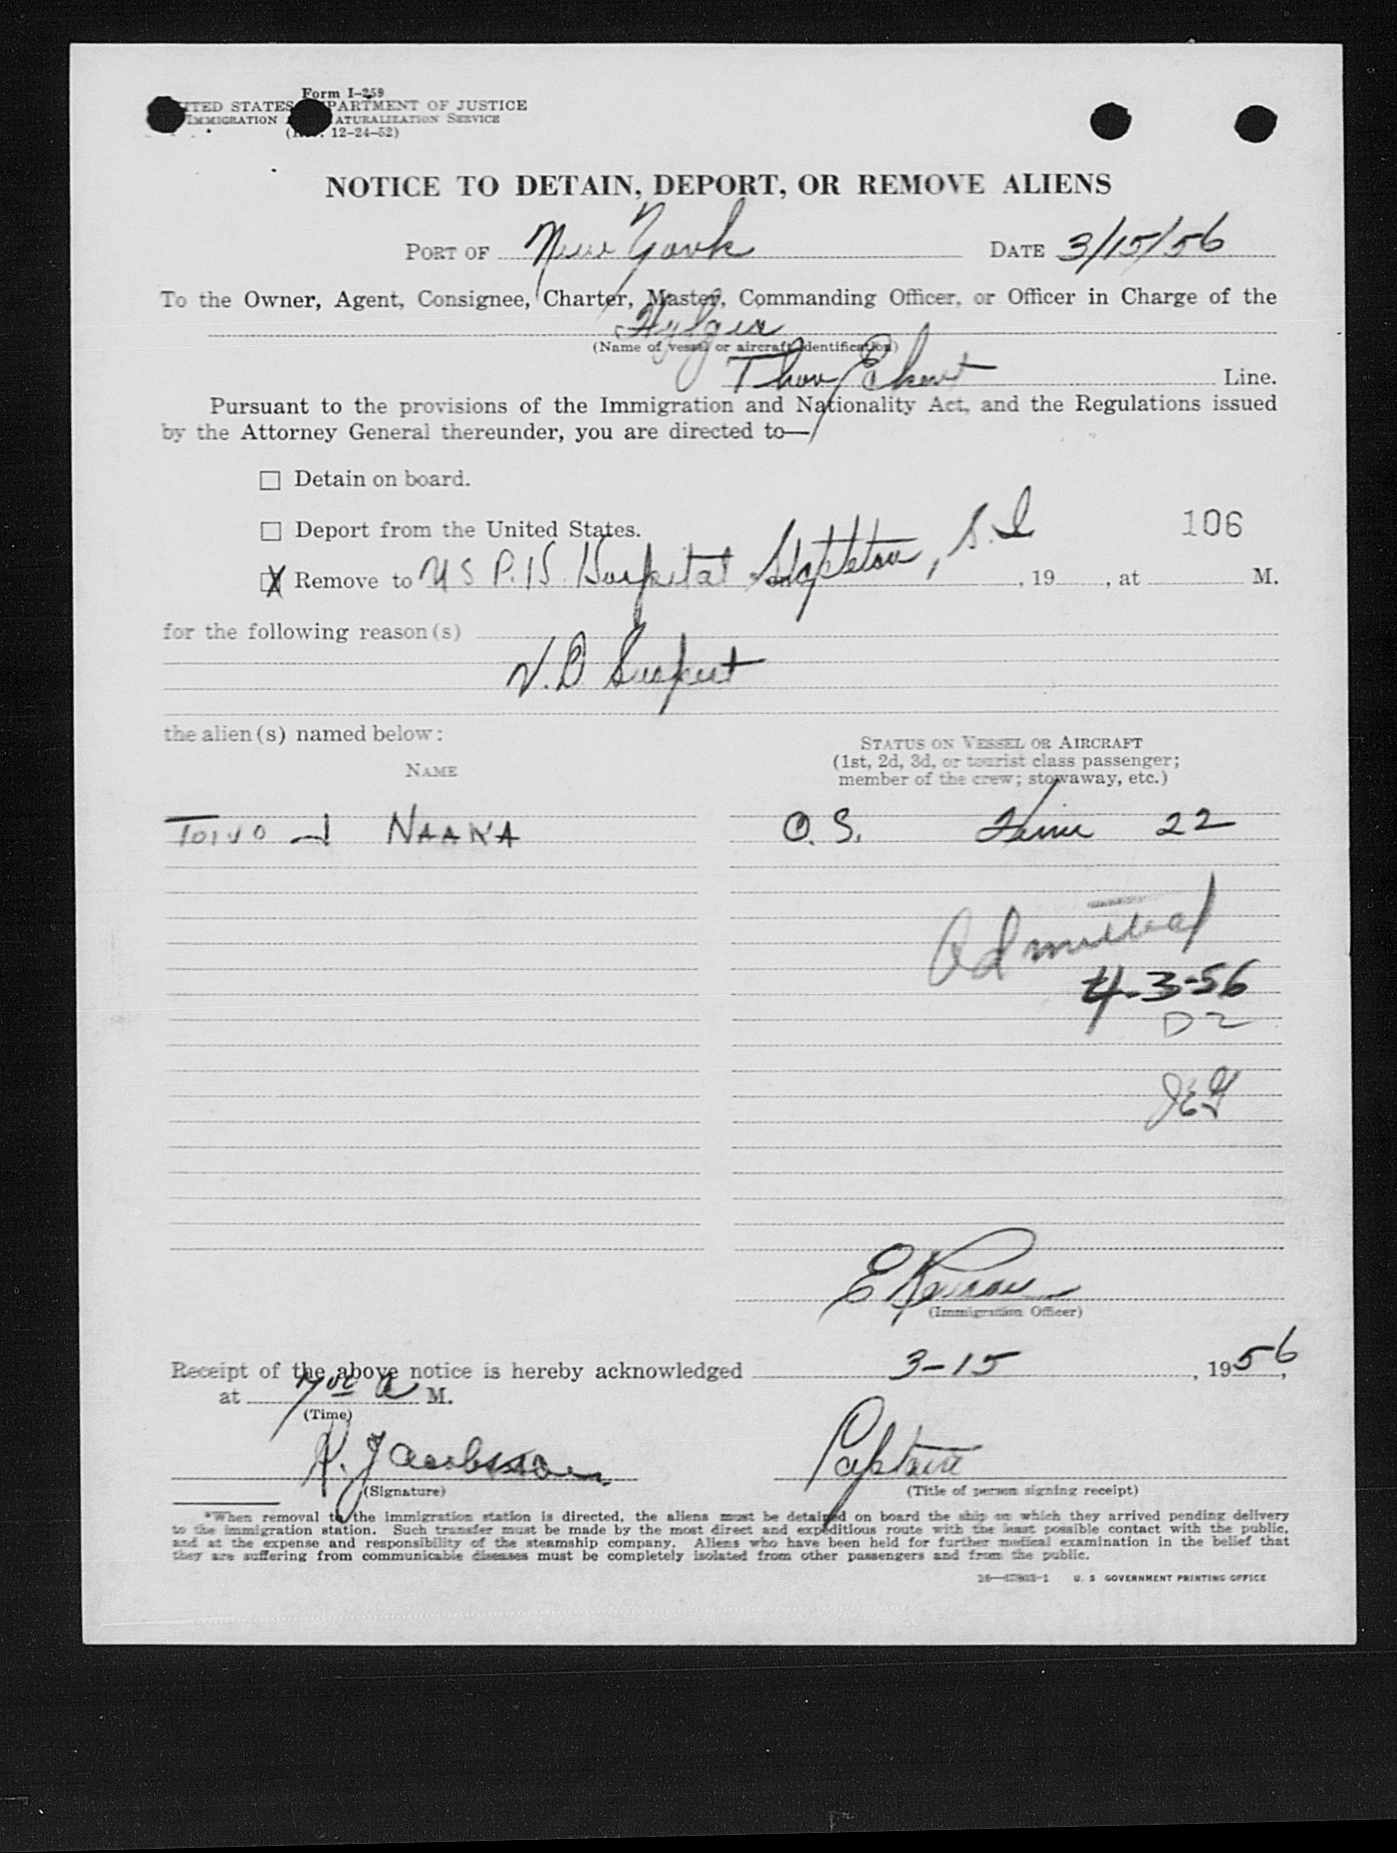 Form I-259
UNITED STATES DEPARTMENT OF JUSTICE
IMMIGRATION AND NATURALIZATION SERVICE
(Rev. 12-24-52)
NOTICE TO DETAIN, DEPORT, OR REMOVE ALIENS
PORT OF New York DATE 3/15/56
To the Owner, Agent, Consignee, Charter, Master, Commanding Officer, or Officer in Charge of the
(Name of vessel or aircraft identification)
Thor Eckert Line.
Pursuant to the provisions of the Immigration and Nationality Act, and the Regulations issued
by the Attorney General thereunder, you are directed to—
☐ Detain on board.
☐ Deport from the United States.
106
☒ Remove to U S P.H. Hospital Stapleton, S.I , 19 , at M.
for the following reason(s)
V.D. Suspect
the alien(s) named below:
STATUS ON VESSEL OR AIRCRAFT
(1st, 2d, 3d, or tourist class passenger;
member of the crew; stowaway, etc.)
NAME
TOIVO J NAAKA O. S. Finn 22
Admitted
4-3-56
D2
JEG
(Immigration Officer)
Receipt of the above notice is hereby acknowledged 3-15, 1956,
at 7 00 A M.
(Time)
K. Jacobsson Captain
(Signature) (Title of person signing receipt)
*When removal to the immigration station is directed, the aliens must be detained on board the ship on which they arrived pending delivery
to the immigration station. Such transfer must be made by the most direct and expeditious route with the least possible contact with the public,
and at the expense and responsibility of the steamship company. Aliens who have been held for further medical examination in the belief that
they are suffering from communicable diseases must be completely isolated from other passengers and from the public.
U. S GOVERNMENT PRINTING OFFICE